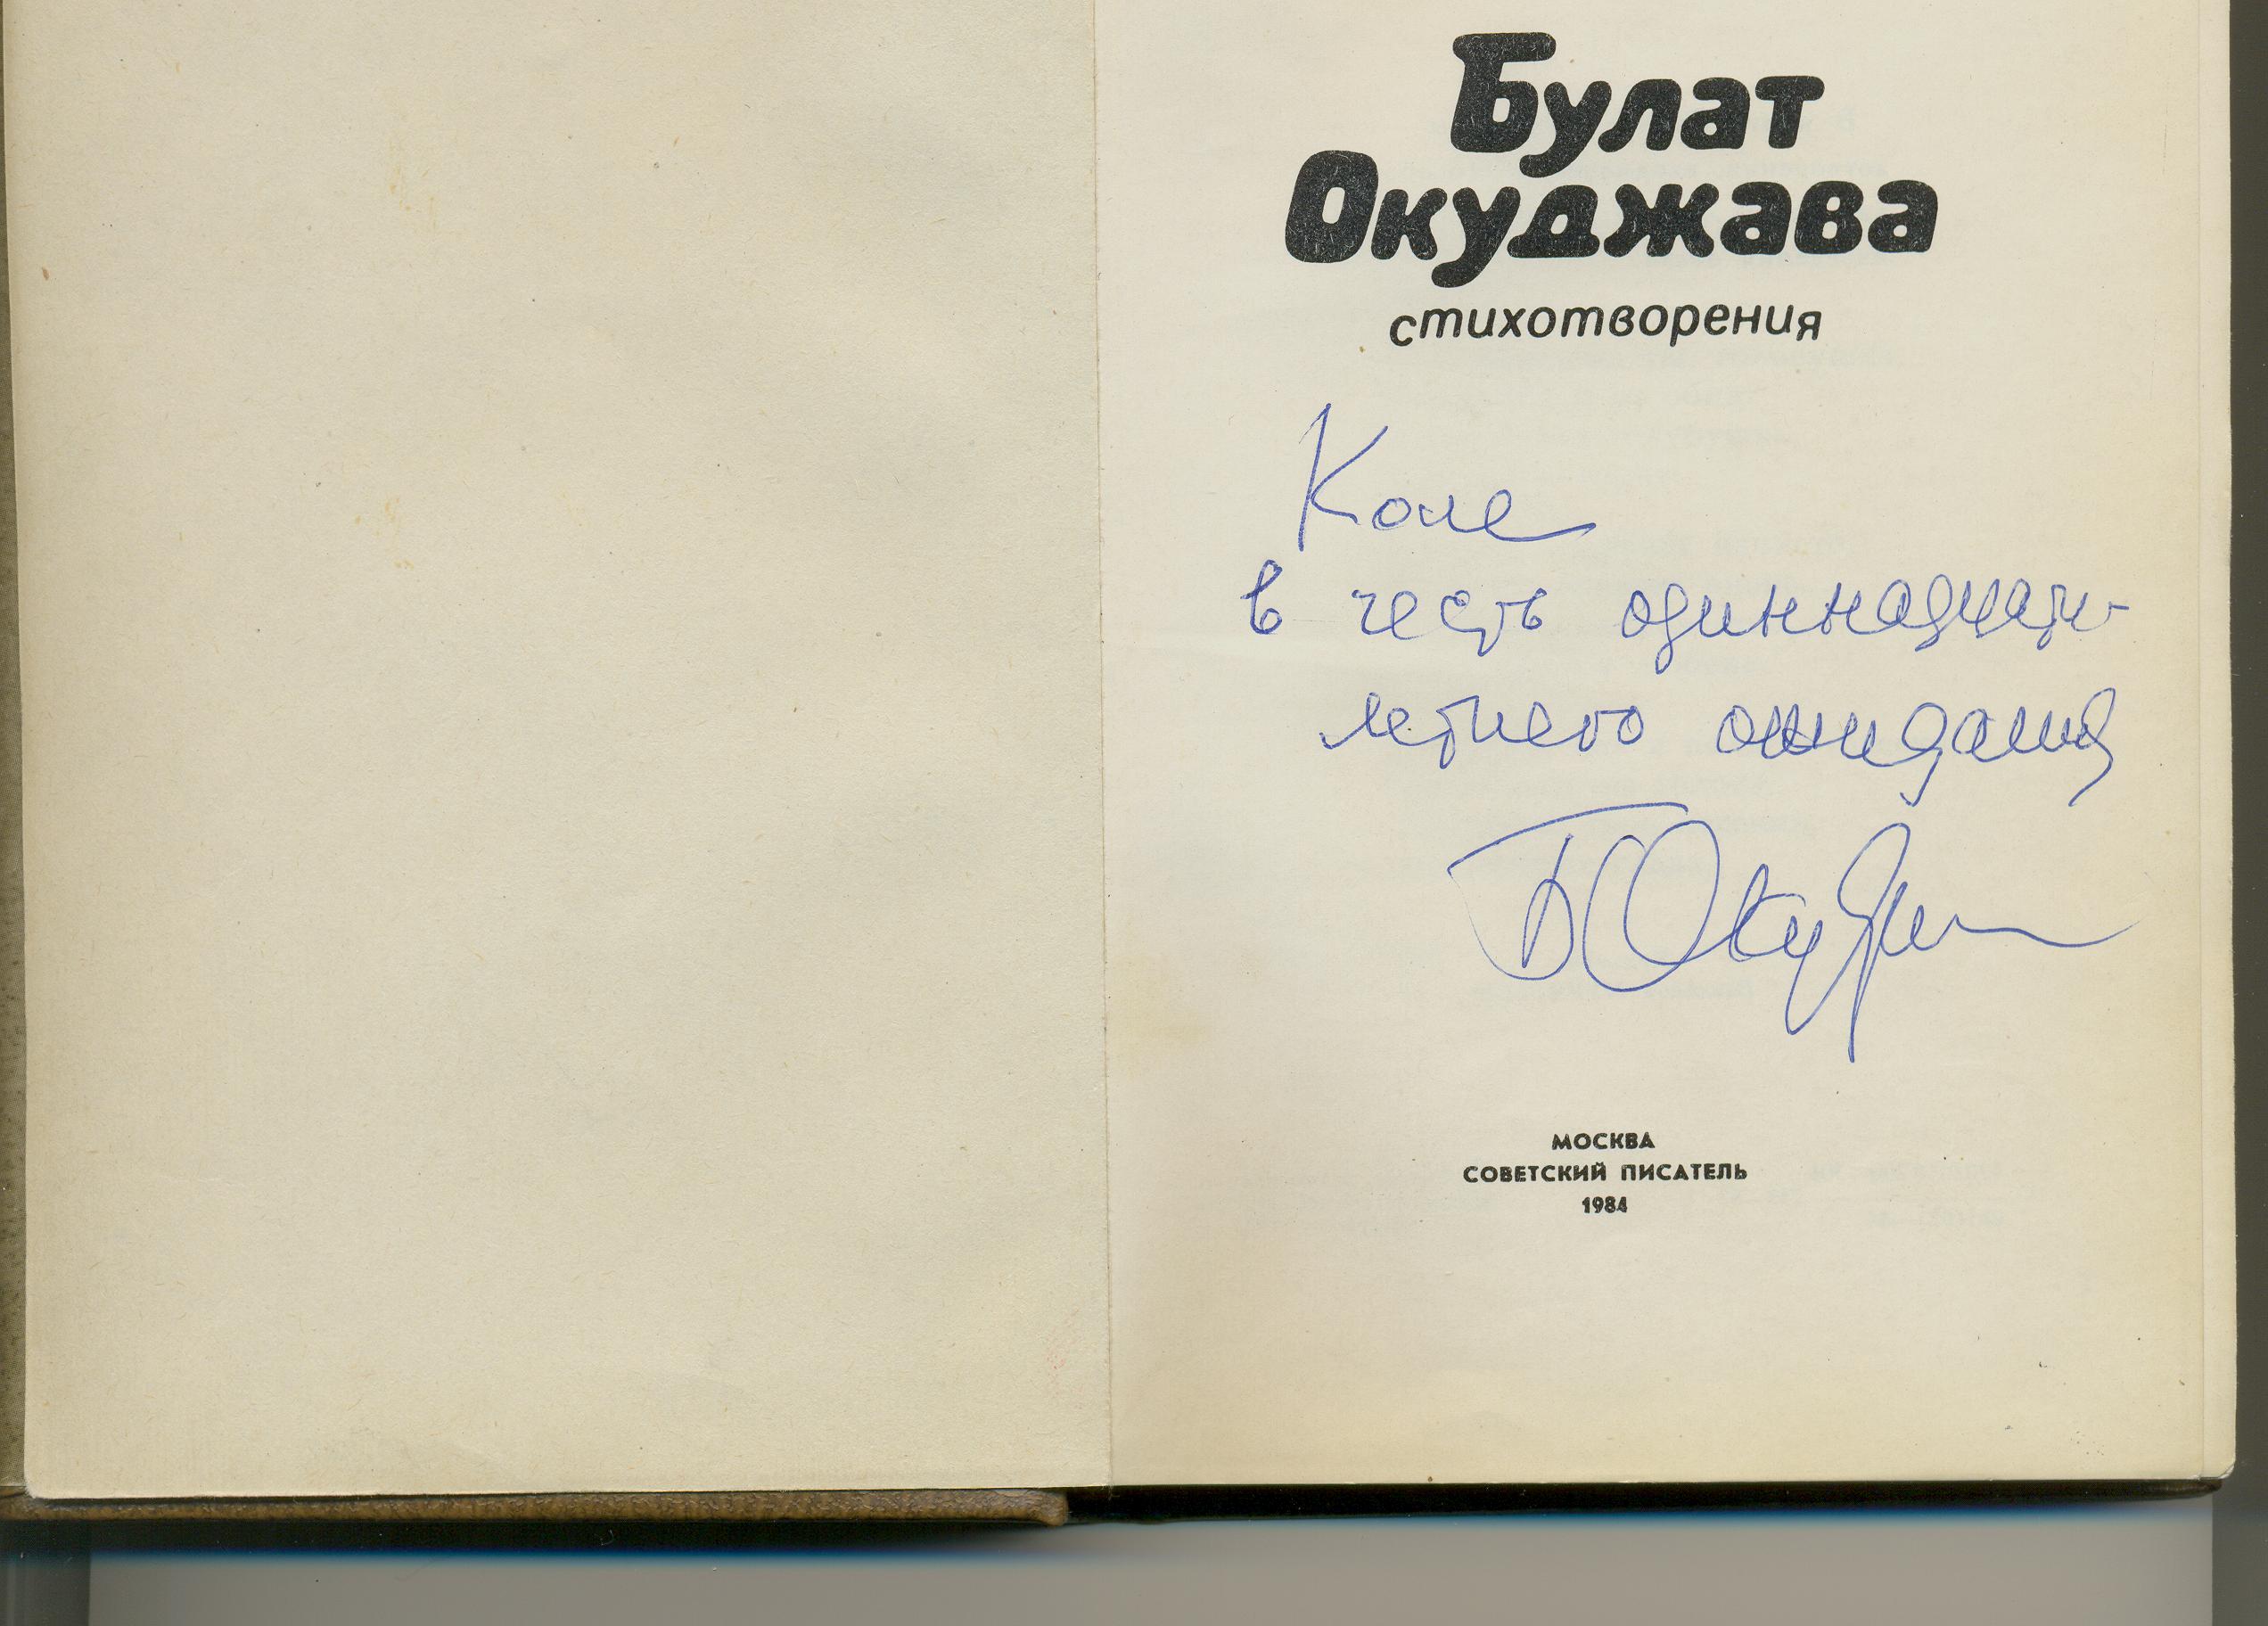 Булат
Окуджава
стихотворения
Коле
в честь одиннадцати-
летнего ожидания
Б Окуджава
МОСКВА
СОВЕТСКИЙ ПИСАТЕЛЬ
1984